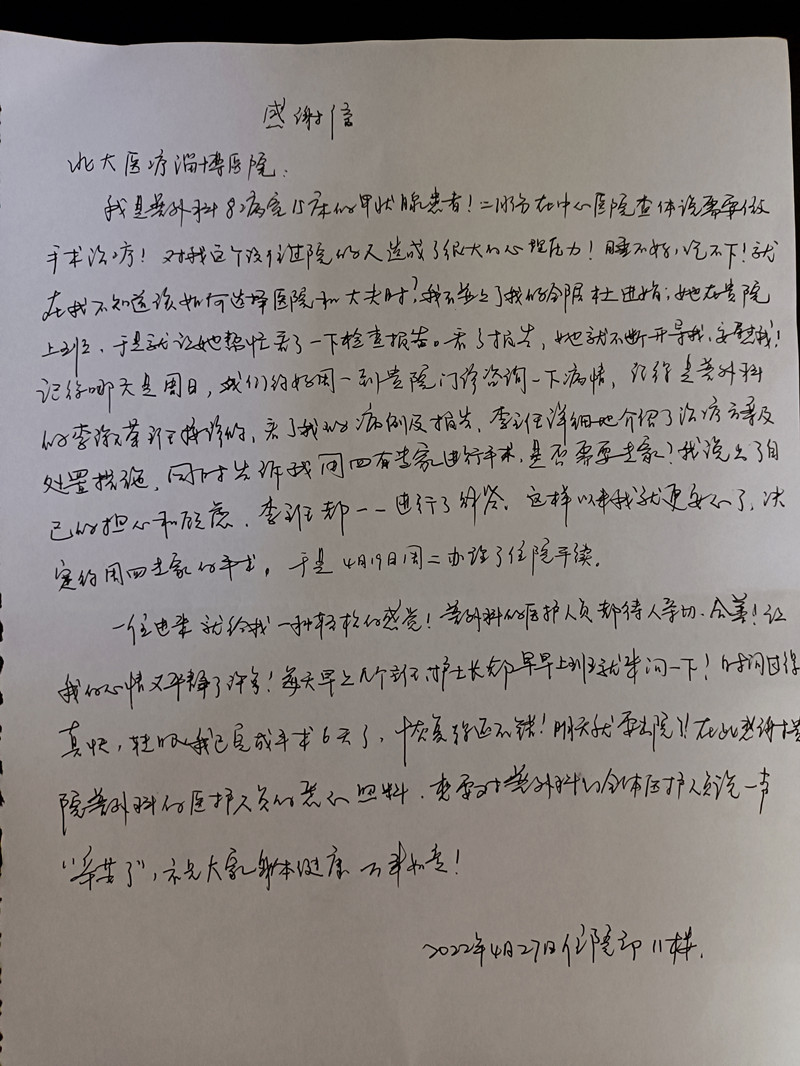 感谢信
北大医疗淄博医院:
我是普外科8病室15床的甲状腺患者!二月份在中心医院查体说需要做
手术治疗!对我这个没住过院的人造成了很大的心理压力!睡不好,吃不下!就
在我不知道该如何选择医院和大夫时?我不是上了我的邻居杜进娟,她在贵院
上班、于是就让她帮忙看了一下检查报告。看了报告,她就不断开导我,安慰我!
记得哪天是周日,我们约好周一到贵院门诊咨询一下病情,记得是普外科
的李 主任接诊的,看了我的病例及报告,李主任详细地介绍了治疗方案及
处置措施,同时告诉我周四有专家进行手术,是否需要专家?我说出了自
己的担心和顾虑,李主任都一一进行了解答。这样以来我就更安心了,决
定约周四专家的手术。于是4月19日周二办理了住院手续。
一住进来就给我一种轻松的感觉!普外科的医护人员都待人亲切、和善!让
我的心情又平静了许多!每天早上几个主任、护士长都早早上班就来问一下!时间过得
真快,转眼我已完成手术6天了,恢复得还不错!明天就要出院了!在此感谢贵
院普外科的医护人员的悉心照料,更要对普外科的全体医护人员说一声
“辛苦了”,祝大家身体健康 万事如意!
2022年4月27日住院部11楼.